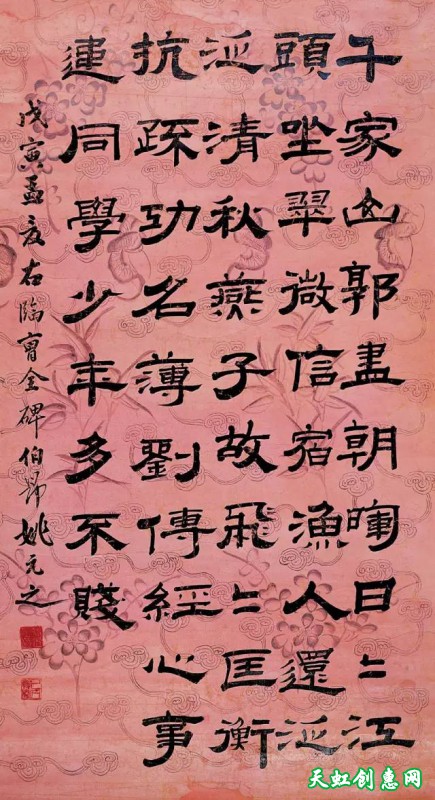 千家山郭盡朝暉日〻江
頭坐翠微信宿漁人還泛
泛清秋燕子故飛〻匡衡
抗疏功名薄劉傳經心事
連同學少年多不賤
戊寅孟夏右臨曹全碑伯昂姚元之
天虹创惠网